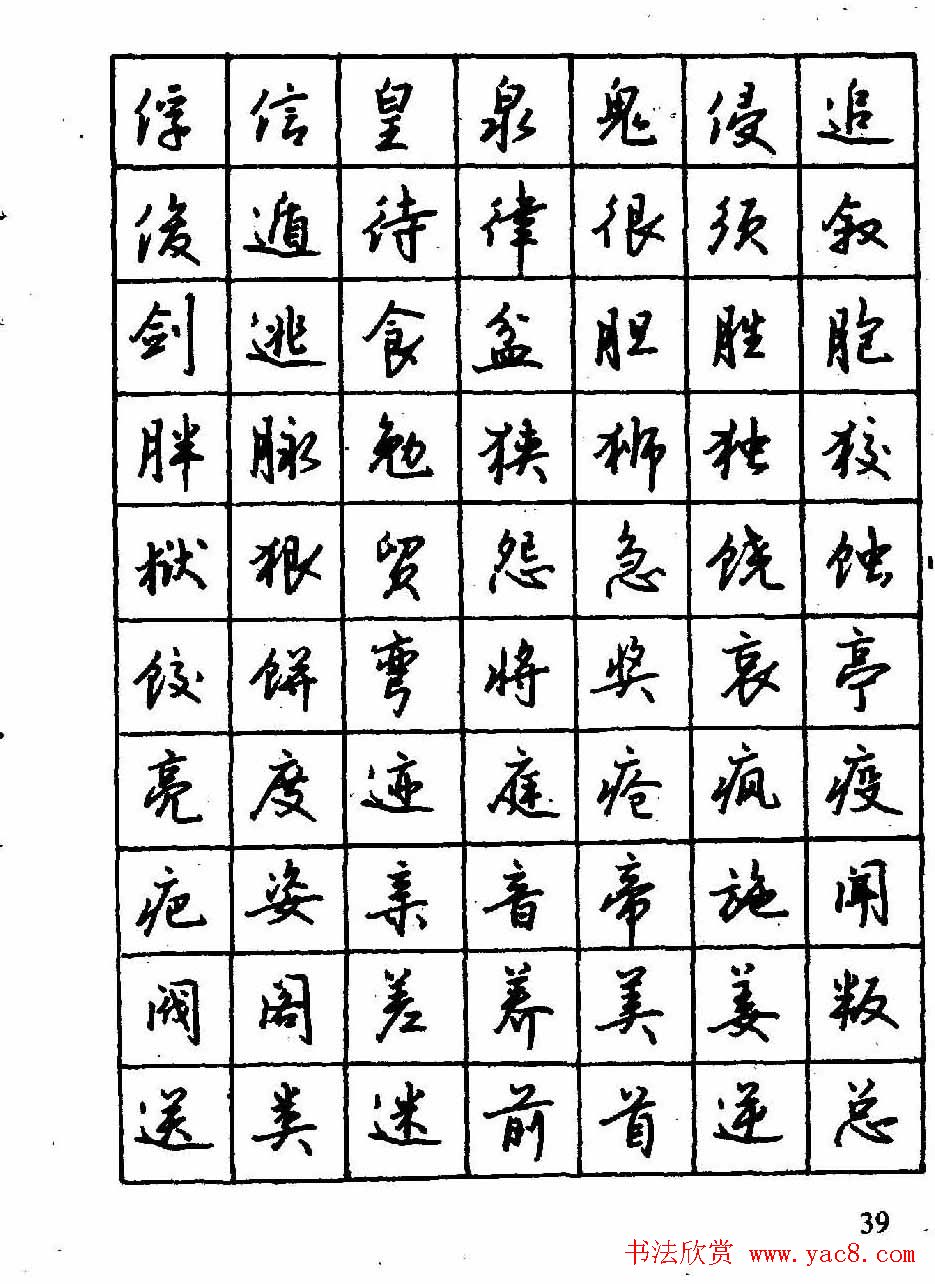 俘信皇泉鬼侵追
俊遁待律很须叙
剑逃食盆胆胜胞
胖脉勉狭狮独狡
狱狠贸怨急饶蚀
饺饼弯将奖哀亭
亮度迹庭疮疯疫
疤姿亲音帝施闻
阀阁差养美姜叛
送类迷前首逆总
39
书法欣赏 www.yac8.com